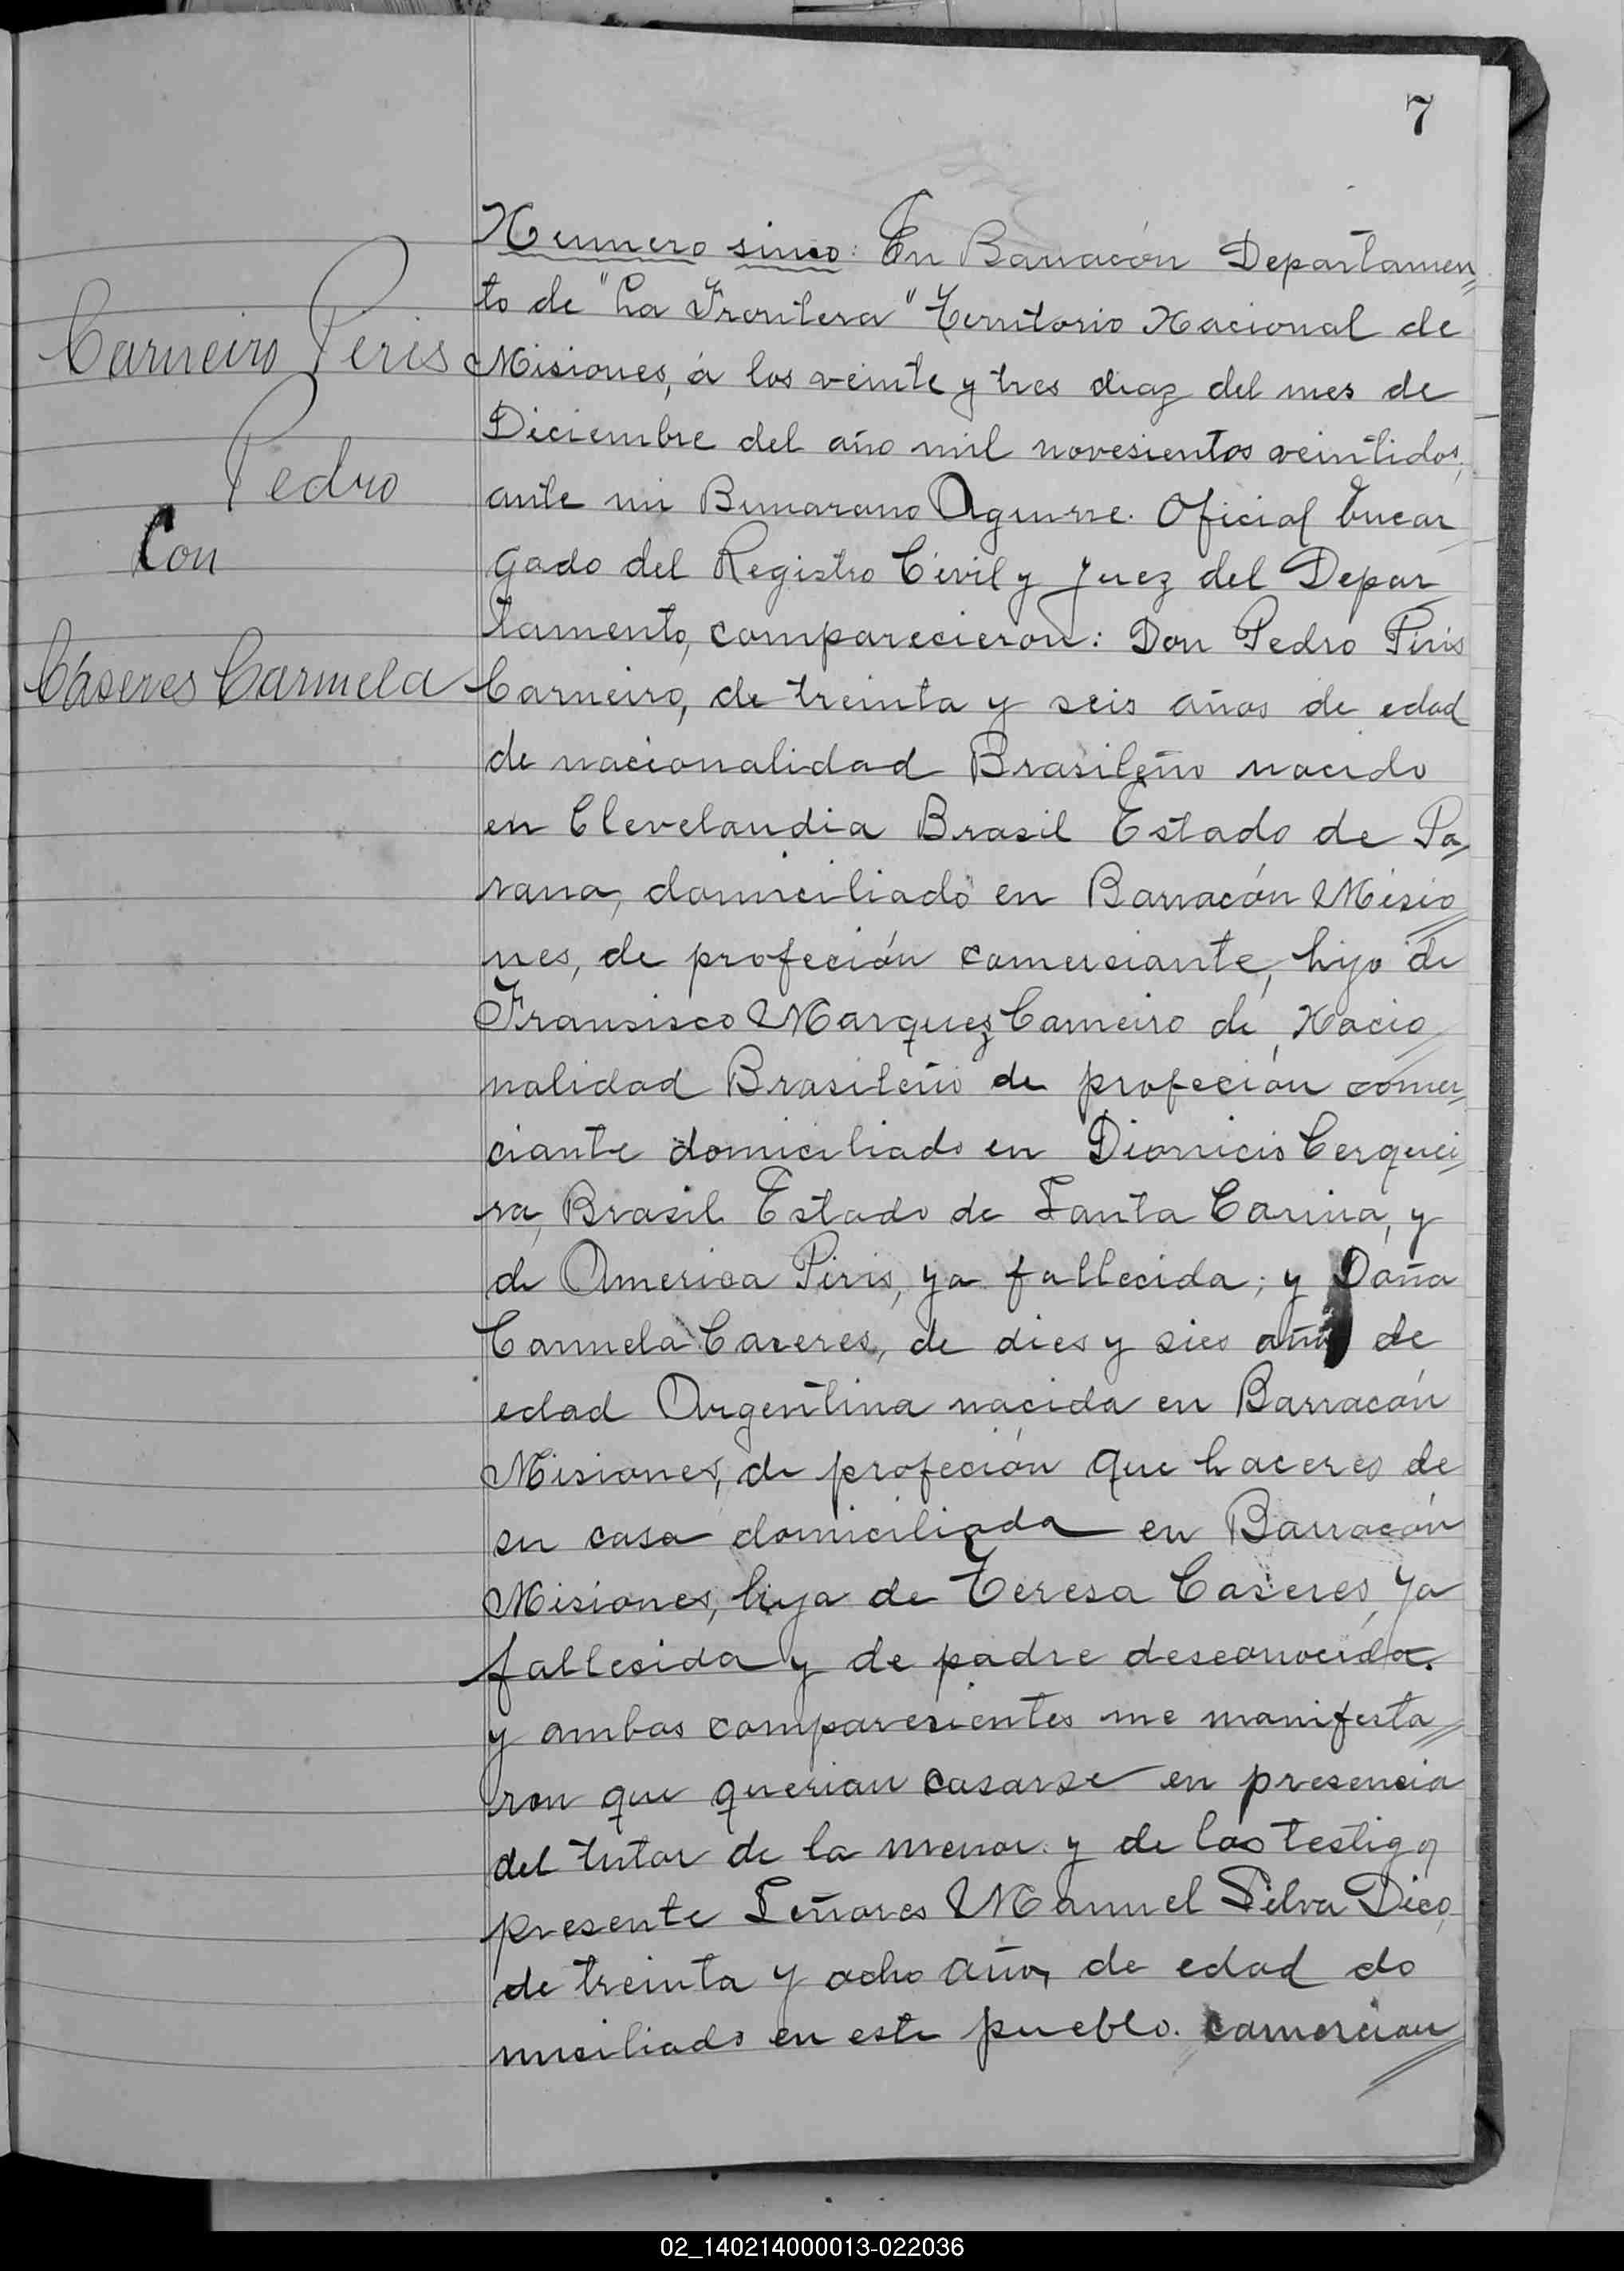 7
Carneiro Peris
Pedro
Con
Cáseres Carmela
Numero sinco: En Barracón Departamen
to de "La Frontera" Territorio Nacional de
Misiones, á los veinte y tres diaz del mes de
Diciembre del año mil novesientos veintidos,
ante mi Aguirre. Oficial Encar
gado del Registro Civil y Juez del Depar
tamento, comparecieron: Don Pedro Piris
Carneiro, de treinta y seis años de edad
de nacionalidad Brasileño nacido
en Clevelandia Brasil Estado de Pa
rana, domiciliado en Barracón Misio
nes, de profeción comersiante, hijo de
Fransisco Marquez Carneiro de Nacio
nalidad Brasileño de profeción comer
ciante domiciliado en Dionicio Cerquei
ra, Brasil Estado de Santa Carina, y
de America Piris, ya fallecida; y Doña
Carmela Caceres, de dies y sies años de
edad Argentina nacida en Barracón
Misiones, de profeción que haceres de
su casa domiciliada en Barracón
Misiones, hija de Teresa Caseres, ya
fallesida y de padre desconocida.
y ambos comparesientes me manifesta
ron que querian casarse en presencia
del tutor de la menor. y de los testigo
presente Señores Manuel Silva Dico,
de treinta y ocho años, de edad do
miciliado en este pueblo. comercian
02_140214000013-022036